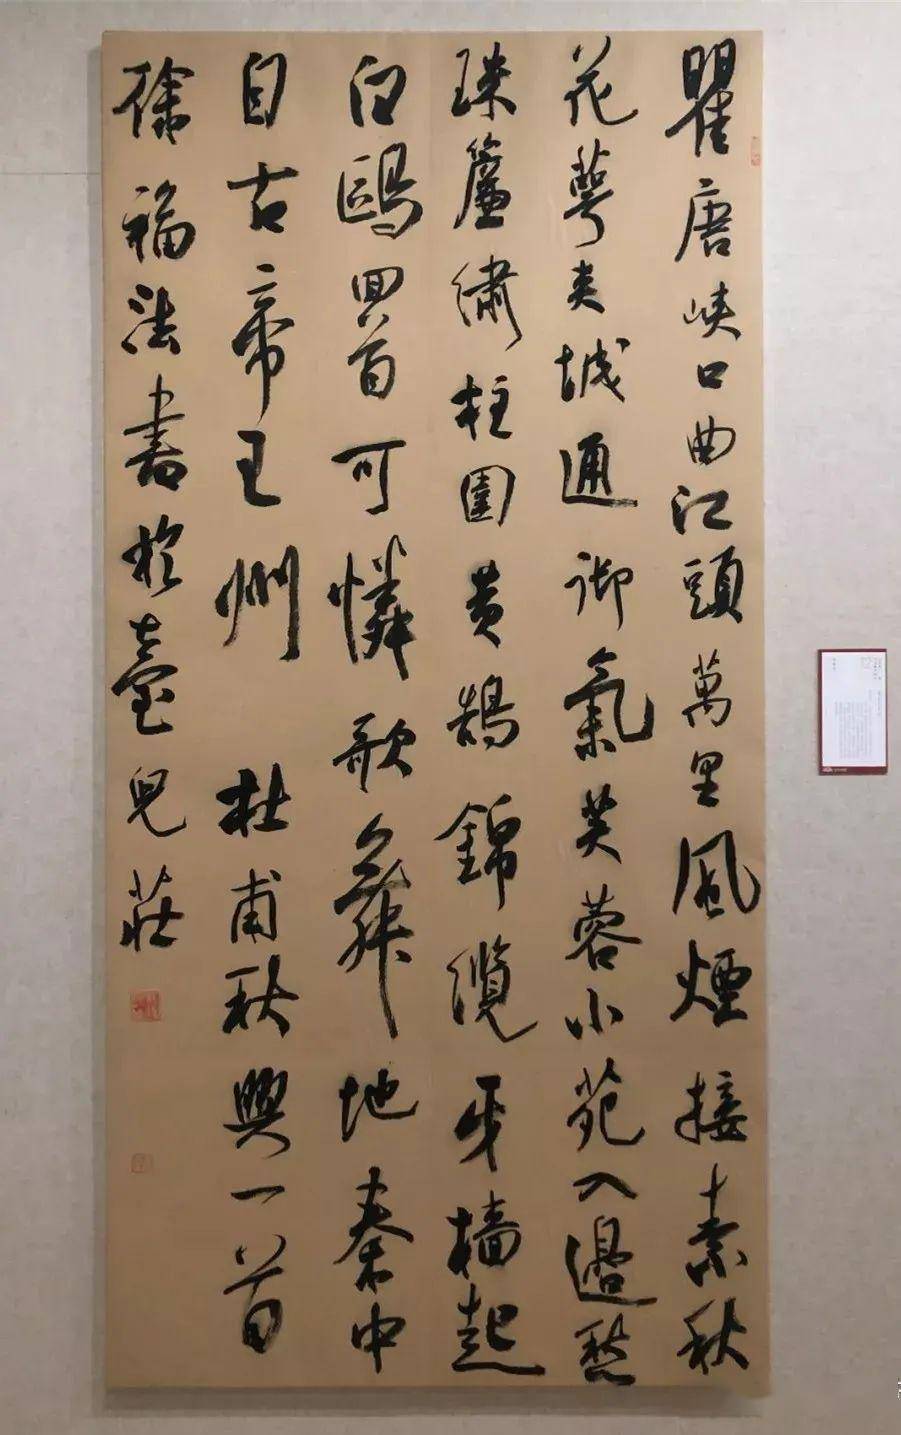 瞿唐峡口曲江頭萬里風煙接素秋
花萼夹城通御氣芙蓉小苑入邊愁
珠簾繡柱圍黄鵠錦纜牙檣起
白鷗囬首可憐歌舞地秦中
自古帝王州 杜甫秋興一首
徐福法書於臺兒莊